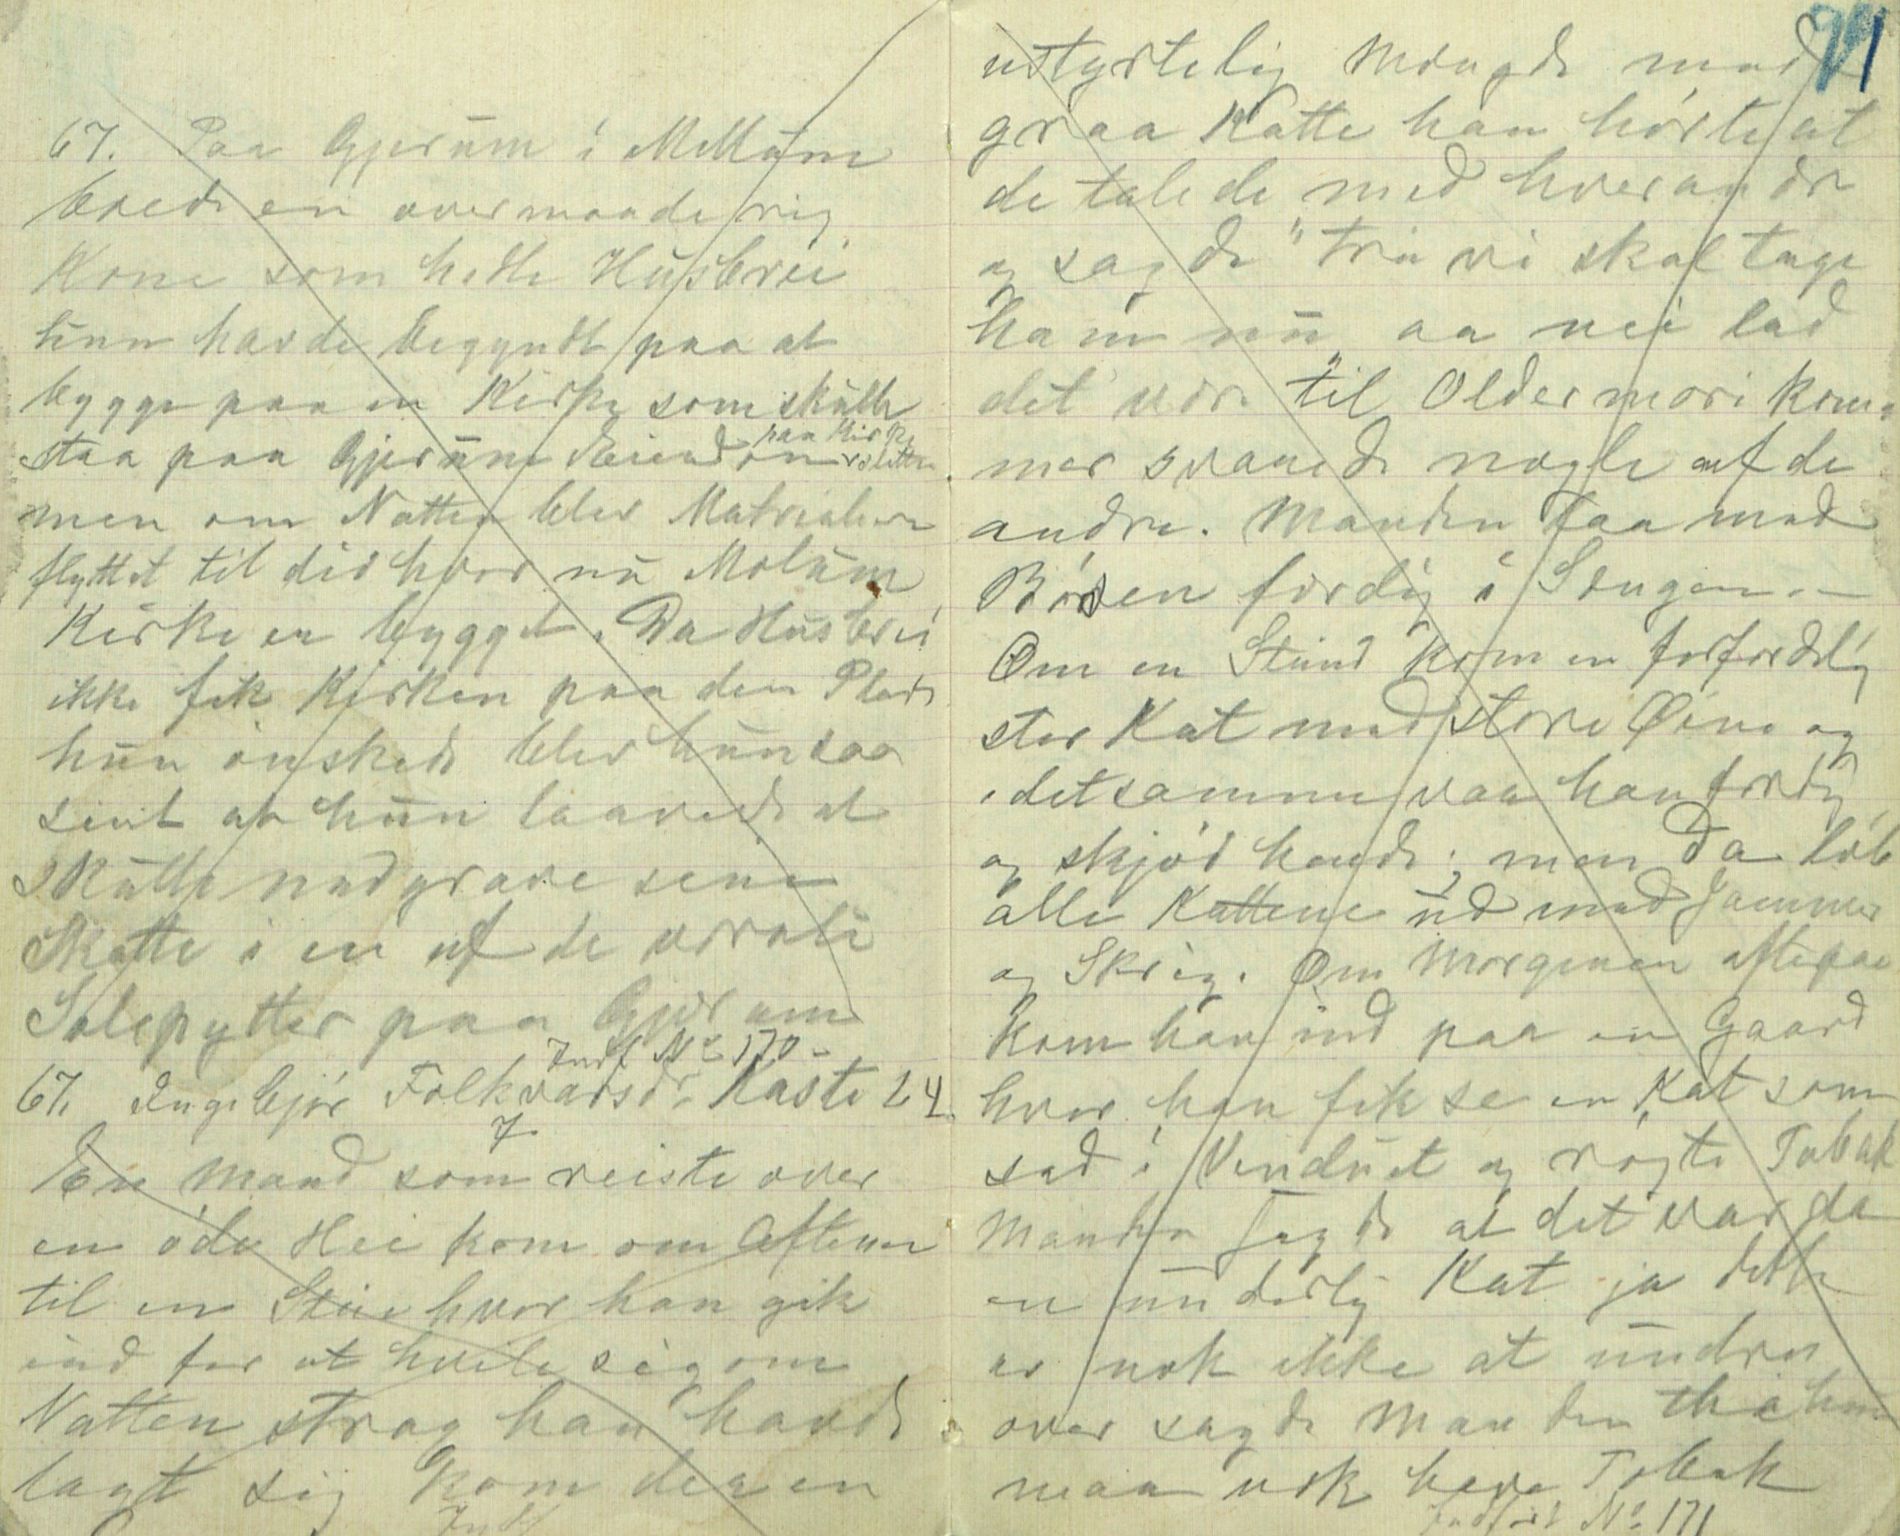 67. Paa Gjerum i Mellum
boede en overmaade rig
Kone som hedte Husbrei
hun havde begyndt paa at
bygge paa en Kirke som skulle
paa Kirke
staa paa Gjerum Eiendom sletten
men om Natten blev Matrialerne
flyttet til did hvor nu Molum
Kirke er bygget. Da Husbrei
ikke fik Kirken paa den Plads
hun ønskede blev hun saa
sint at hun laavede at
skulle nedgrave sine
Skatte i en af de
Sølepytter paa Gjerum
Indf No 170
67. Ingebjør Folkvarsdr. Kaste 24
7
En Mand som reiste over
en øde Hei kom om Aftenen
til en Stue hvor han gik
ind for at hvile sig om
Natten strag han havde
lagt sig kom der en
Indf
71
ustyrtelig Mængde med
graa Katte han hørte at
de talede med hverandre
og sagde "tru vi skal tage
ham nu, aa nei lad
det være til Oldermori kom-
mer svarede nogle af de
andre. Manden laa med
Børsen færdig i Sengen. –
Om en Stund kom en forfærdelig
stor Kat med store Øine og
i det samme var han færdig
og skjød hende; men da løb
alle Kattene ud med Jammer
og Skrig. Om Morgenen efterpaa
kom han ind paa en Gaard
hvor han fik se en Kat som
sad i Vinduet og røgte Tobak
Manden sagde at det var da
en underlig Kat ja dette
er nok ikke at undres
over sagde Manden thi hun
maa nok have Tobak
Indført No 171